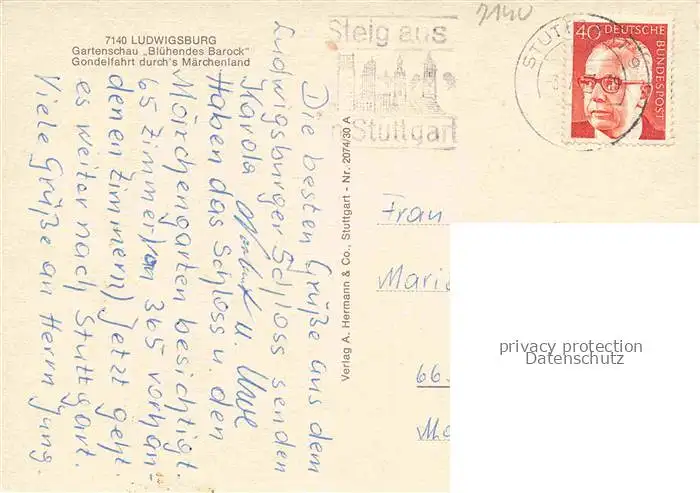 7140 LUDWIGSBURG
Gartenschau „Blühendes Barock"
Gondelfahrt durch's Märchenland
7140
Steig aus
in Stuttgart
STUTT
40 DEUTSCHE
BUNDESPOST
Die besten Grüße aus dem
Ludwigsburger Schloss senden
Karola Norbert u. Uwe
Haben das Schloss u. den
Märchengarten besichtigt.
65 Zimmer (von 365 vorhan-
denen Zimmern) Jetzt geht
es weiter nach Stuttgart.
Viele Grüße an Herrn Jung.
Verlag A. Hermann & Co., Stuttgart - Nr. 2074/30 A
Frau
Mari
66
privacy protection
Datenschutz